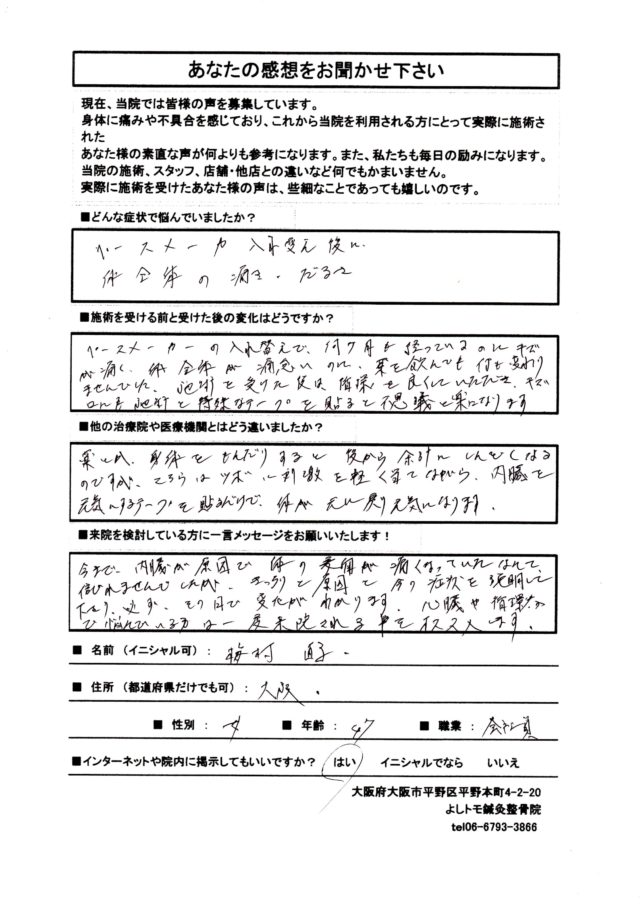 あなたの感想をお聞かせ下さい
現在、当院では皆様の声を募集しています。
身体に痛みや不具合を感じており、これから当院を利用される方にとって実際に施術さ
れた
あなた様の素直な声が何よりも参考になります。また、私たちも毎日の励みになります。
当院の施術、スタッフ、店舗・他店との違いなど何でもかまいません。
実際に施術を受けたあなた様の声は、些細なことであっても嬉しいのです。
■どんな症状で悩んでいましたか？
ペースメーカ 入れ変え 後に
体全体の痛さ・だるさ
■施術を受ける前と受けた後の変化はどうですか？
ペースメーカーの入れ替えで、何ヶ月も経っているのにキズ
が痛く、体全体が痛怠いのに、薬を飲んでも何も変わり
ませんでした。施術を受けた後は循環を良くしていただき、キズ
施術と特殊なテープを貼ると不思議と楽になります
■他の治療院や医療機関とはどう違いましたか？
薬とか、身体をもんだりすると後から余計にしんどくなる
のですが、こちらはツボに刺激を軽く当てながら、内臓を
元気にするテープを貼るだけで、体が元に戻り元気になります。
■来院を検討している方に一言メッセージをお願いいたします！
今まで、内臓が原因で体の表面が痛くなっていたなんて、
信じれませんでしたが、きっちりと原因と今の症状を説明して
下さり、必ず、その日で変化がわかります。心臓や循環
で悩んでいる方は一度来院される事をオススメします。
■ 名前（イニシャル可）： 梅村
■ 住所（都道府県だけでも可）： 大阪．
■ 性別： 女 ■ 年齢： 47 ■ 職業： 会社員
■インターネットや院内に掲示してもいいですか？ はい イニシャルでなら いいえ
大阪府大阪市平野区平野本町4-2-20
よしトモ鍼灸整骨院
tel06-6793-3866